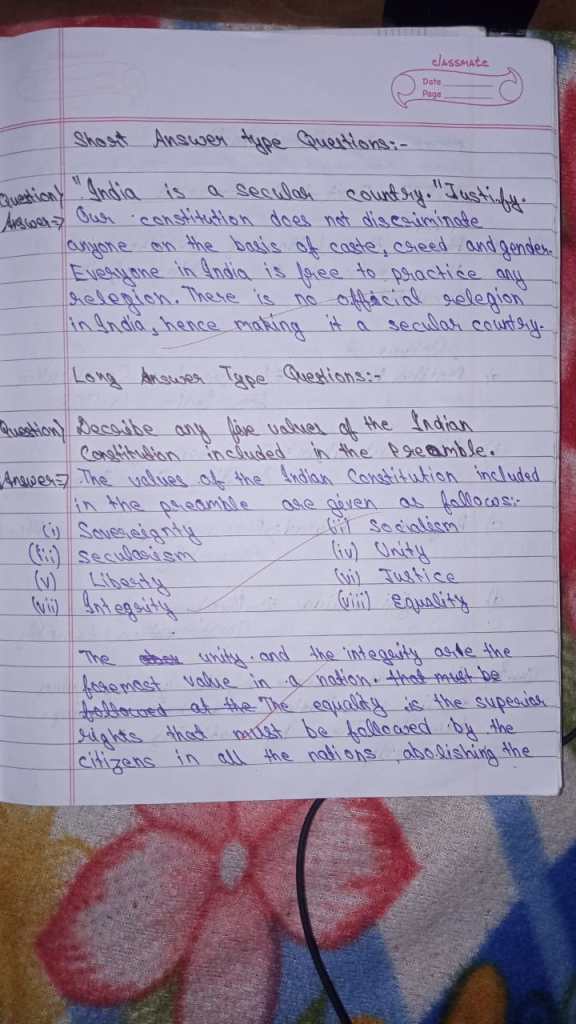 classmate
Date
Page
Short Answer type Questions:-
Question} "India is a secular country." Justify.
Answer=> Our constitution does not discriminate
anyone on the basis of caste, creed and gender.
Everyone in India is free to practice any
relegion. There is no official relegion
in India, hence making it a secular country.
Long Answer Type Questions:-
Question} Describe any five values of the Indian
Constitution included in the Preamble.
Answer=> The values of the Indian Constitution included
in the preamble are given as follows:-
(i) Sovereignty (ii) Socialism
(iii) secularism (iv) Unity
(v) Liberty (vi) Justice
(vii) Integrity (viii) Equality
The unity and the integrity are the
foremost value in a nation. that must be
followed at the The equality is the superior
rights that must be followed by the
citizens in all the nations abolishing the